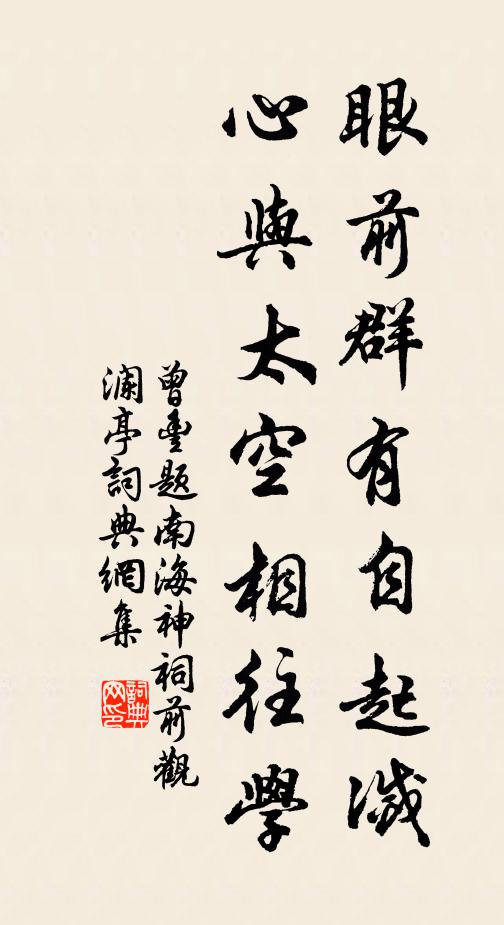 眼前群有自起滅
心與太空相往學
曾豐題南海神祠前觀
瀾亭詞典網集
詞典网印